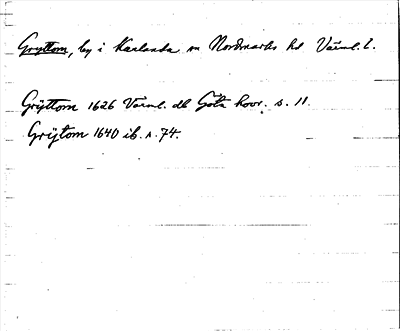 Gryttom, by i Karlanda sn Nordmarks hd Värml. l.
Grÿttom 1626 Värml. db Göta hovr. s. 11.
Grÿtom 1640 ib. s. 74.